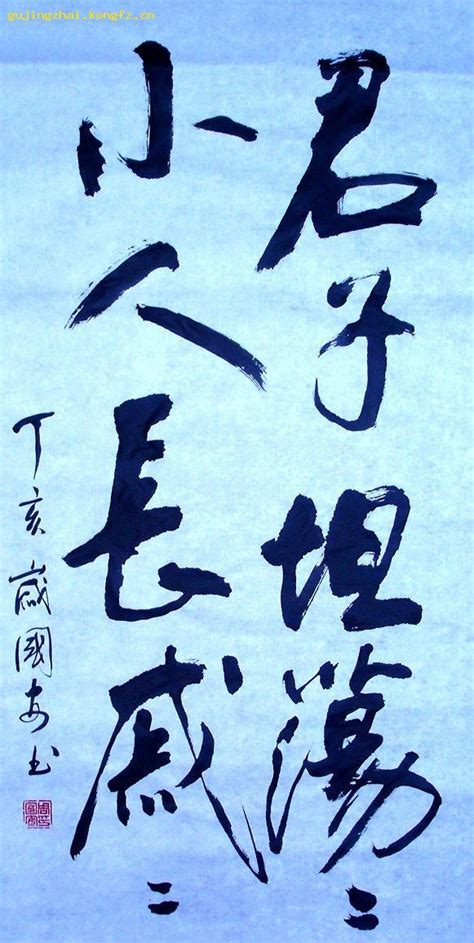 gujingzhai.kongfz.cn
君子坦蕩〻
小人長戚〻
丁亥歲國安书